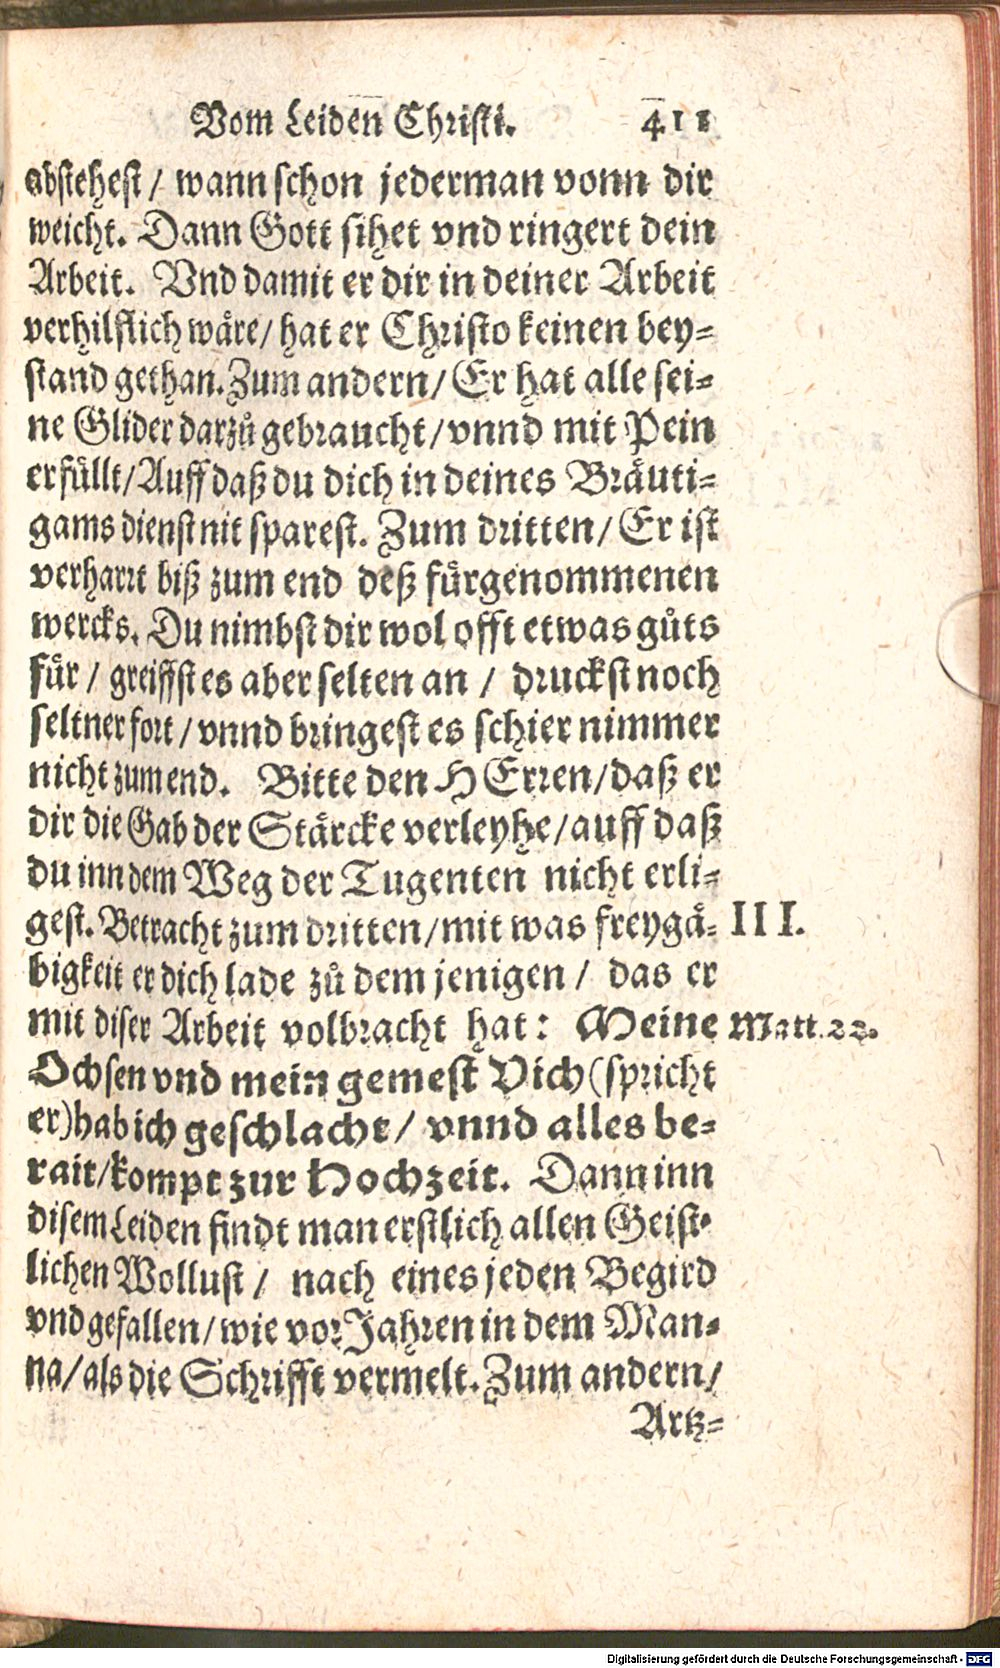 Vom Leiden Christi. 411
abstehest / wann schon jederman vonn dir
weicht. Dann Gott sihet vnd ringert dein
Arbeit. Vnd damit er dir in deiner Arbeit
verhilflich wäre / hat er Christo keinen bey-
stand gethan. Zum andern / Er hat alle sei-
ne Glider darzů gebraucht / vnnd mit Pein
erfüllt / Auff daß du dich in deines Bräuti-
gams dienst nit sparest. Zum dritten / Er ist
verharrt biß zum end deß fürgenommenen
wercks. Du nimbst dir wol offt etwas gůts
für / greiffst es aber selten an / druckst noch
seltner fort / vnnd bringest es schier nimmer
nicht zum end. Bitte den HErren / daß er
dir die Gab der Stärcke verleyhe / auff daß
du inn dem Weg der Tugenten nicht erli-
gest. Betracht zum dritten / mit was freygä- III.
bigkeit er dich lade zů dem jenigen / das er
mit diser Arbeit volbracht hat: Meine Matt. 22.
Ochsen vnd mein gemest Vich (spricht
er) hab ich geschlacht / vnnd alles be-
rait / kompt zur Hochzeit. Dann inn
disem Leiden findt man erstlich allen Geist-
lichen Wollust / nach eines jeden Begird
vnd gefallen / wie vor Jahren in dem Man-
na / als die Schrifft vermelt. Zum andern /
Artz-
Digitalisierung gefördert durch die Deutsche Forschungsgemeinschaft - DFG